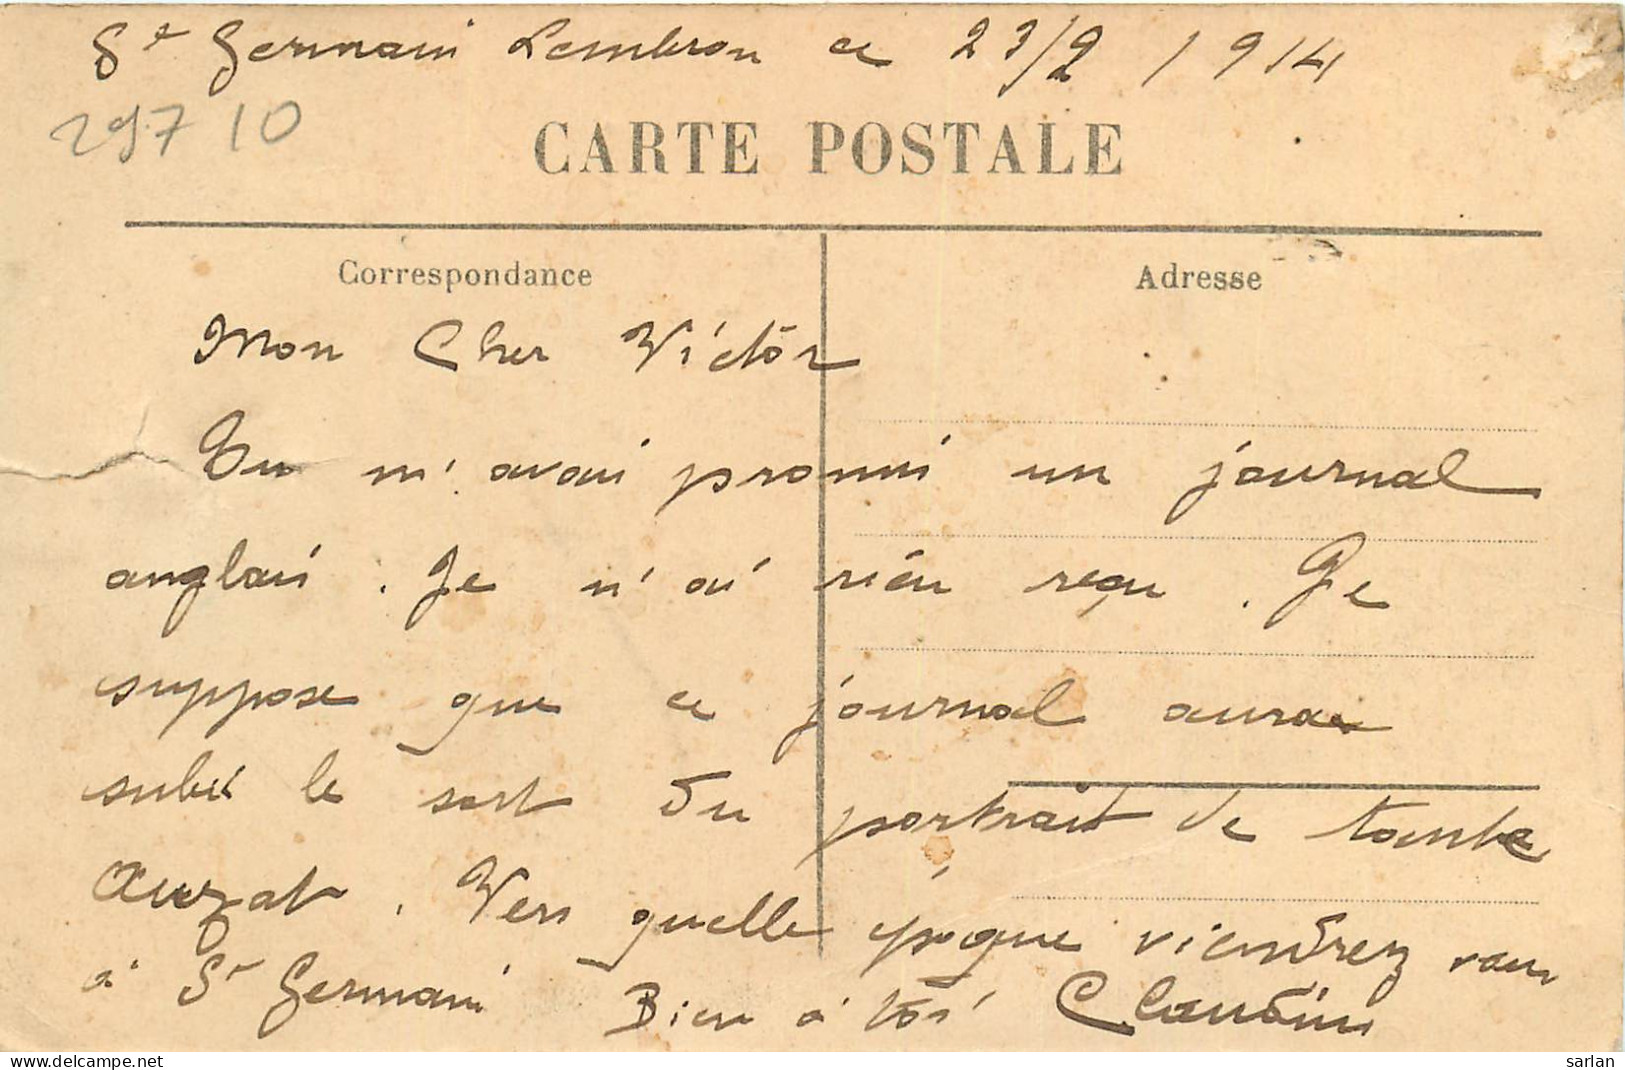 St Germain Lembron ce 23/2 1914
29710
CARTE POSTALE
Correspondance
Adresse
Mon Cher Victor
Tu m'avais promis un journal
anglais. Je n'ai rien reçu. Je
suppose que ce journal aura
subi le sort du portrait de tante
Auzat. Vers quelle époque viendrez vous
à St Germain Bien à toi Claudius
delcampe.net
sarlan